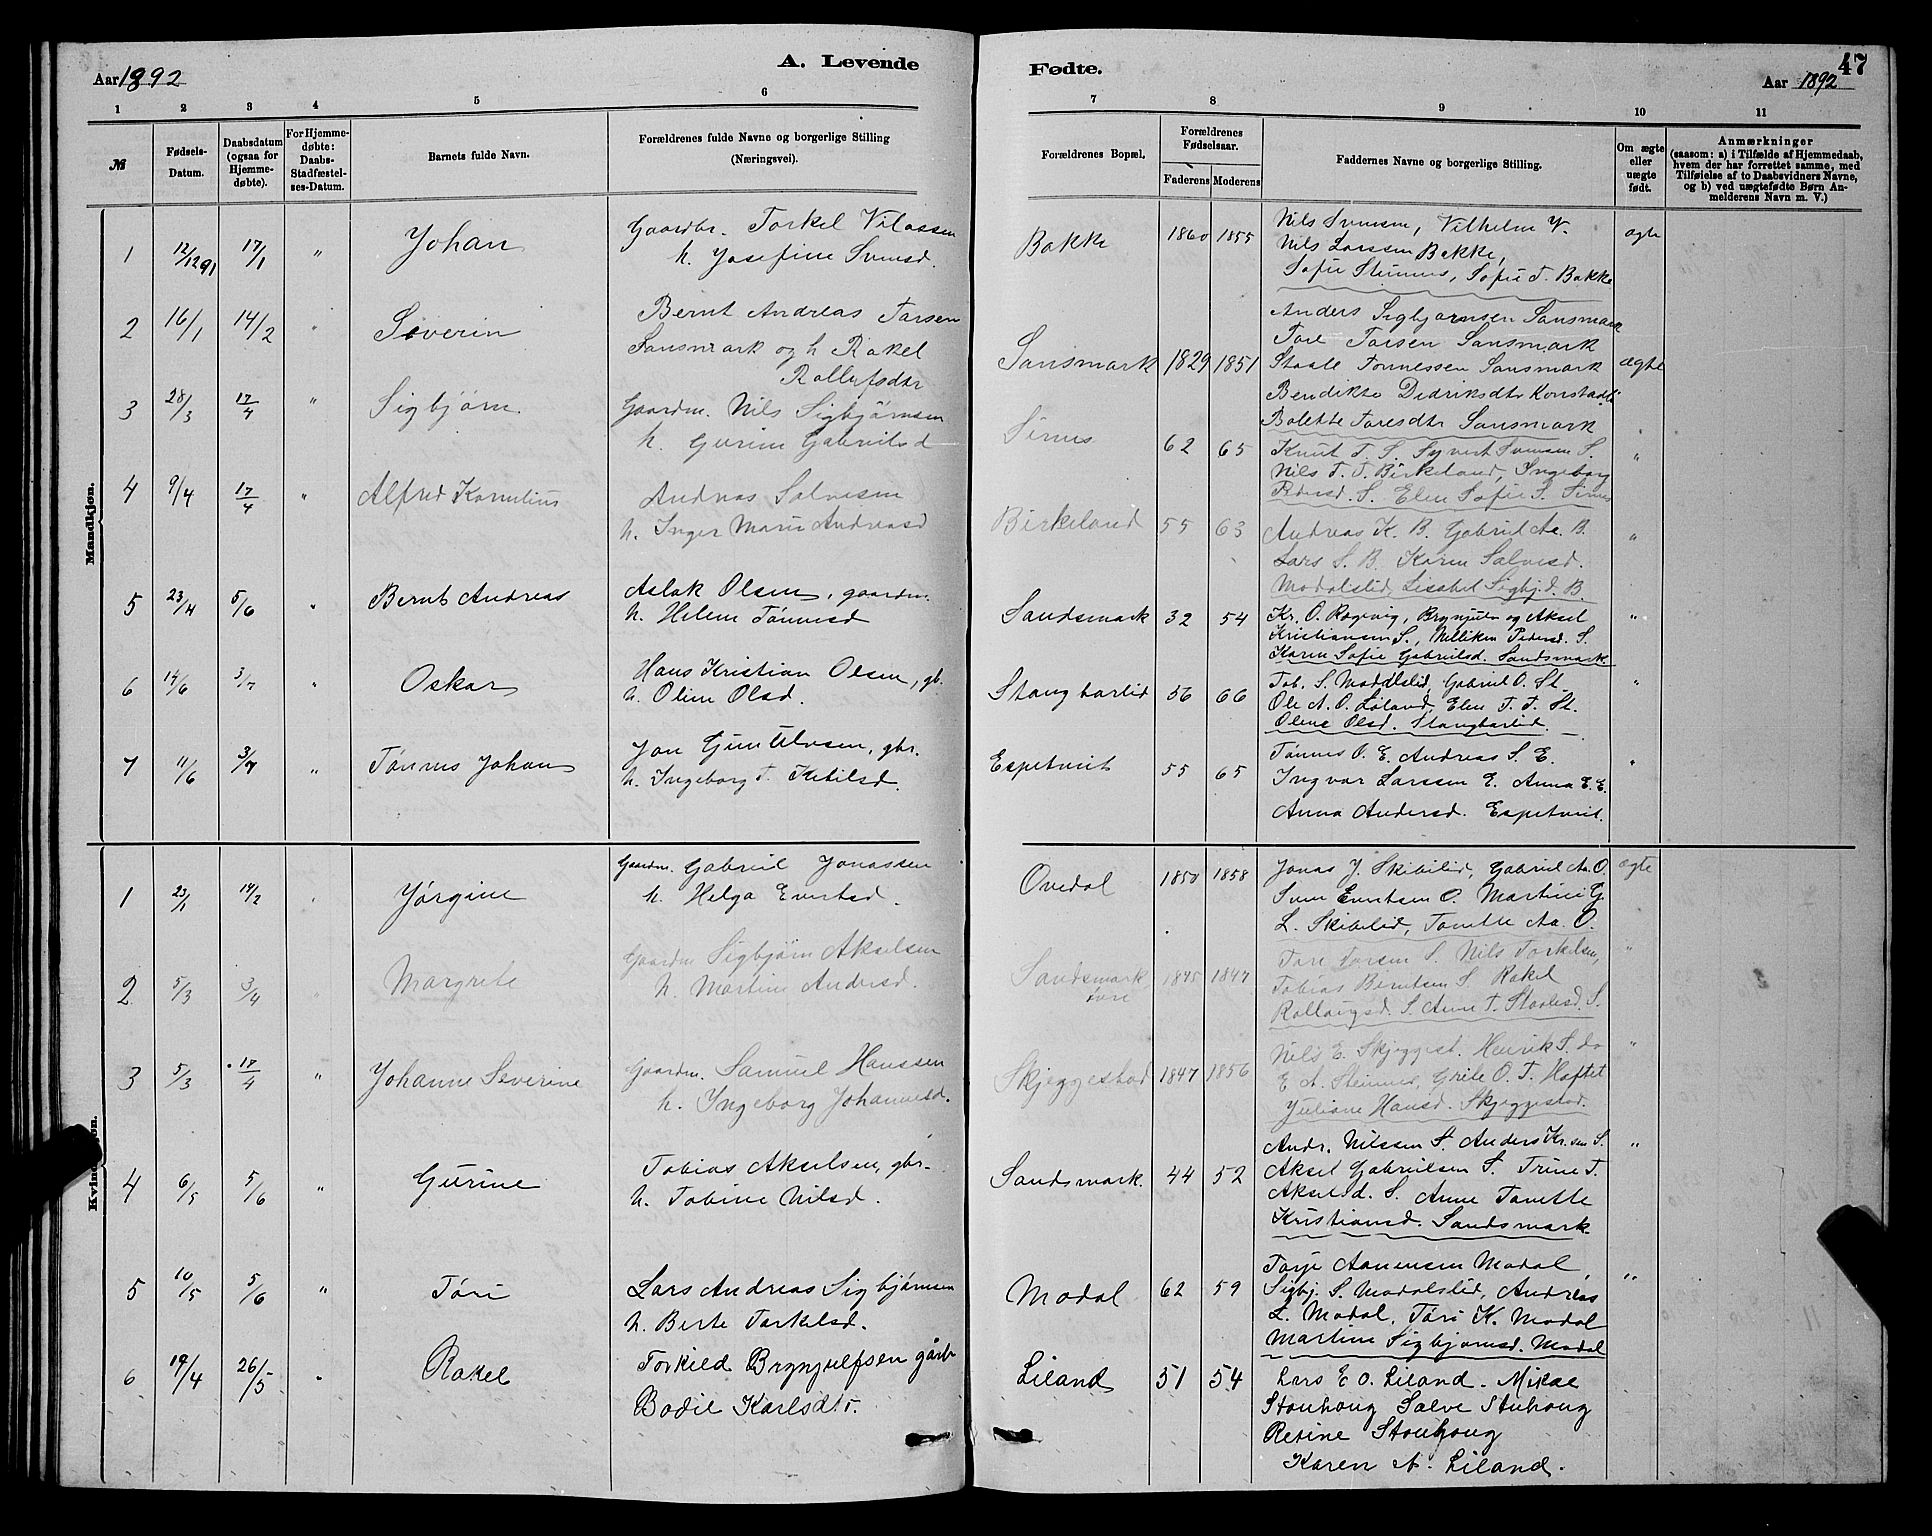 Aar 1892
A. Levende
Fødte.
47
Aar 1892
1 2 3 4 5 6 7 8 9 10 11
№
Fødsels-Datum.
Daabsdatum (ogsaa for Hjemme-døbte).
For Hjemme-døbte: Daabs-Stadfæstel-ses-Datum.
Barnets fulde Navn.
Forældrenes fulde Navne og borgerlige Stilling
(Næringsvei).
Forældrenes Bopæl.
Forældrenes Fødselsaar.
Faderens Moderens
Faddernes Navne og borgerlige Stilling.
Om ægte eller uægte født.
Anmærkninger
(saasom: a) i Tilfælde af Hjemmedaab,
hvem der har forrettet samme, med
Tilføielse af to Daabsvidners Navne,
og b) ved uægtefødte Børn An-
melderens Navn m. V.)
Mandkjøn.
1 12/12 91 17/1 " Johan
Gaardbr. Torkel
h. Josefine Svensd.
Bakke 1860 1855
Nils Svensen, Vilhelm V.
Nils Larssen Bakke,
Sofie Steinnes, Sofie T. Bakke
ægte
2 16/1 14/2 " Severin
Bernt Andreas Tarsen
Sansmark og h Rakel
Rollufsdtr
Sansmark 1829 1851
Anders Sigbjørnsen Sansmark
Tore Torsen Sansmark
Staale Tonnessen Sansmark
Bendikte Didriksdtr
Bolette Toresdtr Sansmark
ægte
3 28/3 17/4 " Sigbjørn.
Gaardm. Nils Sigbjørnsen
h. Gurine Gabrielsd
Sirnes 62 65
Knut T. S. Syvert Svensen S.
Nils T. T. Birkeland, Ingeborg
Pedersd. S. Elen Sofie T. Sirnes
"
4 9/4 17/4 " Alfred Kornelius
Andreas Salvesen
h. Inger Marie Andreasd
Birkeland 55 63
Andreas K. B. Gabriel Aa. B.
Lars S. B. Karen Salvesd.
Modalslid, Lisabet Sigbj.d. B.
"
5 23/4 5/6 " Bernt Andreas
Aslak Olsen, gaardm.
h. Helene Tønnesd
Sandsmark 32 54
Kr. O. Røgevig, Brynjulv og Aksel
Kristiansen S., Milliken Pedersd. S.
Karen Sofie Gabrielsd. Sandsmark
"
6 14/6 3/7 " Oskar
Hans Kristian Olsen, gb.
h. Oline Olsd.
Stangbarlid 56 66
Tob. S. Modalslid, Gabriel O. St.
Ole A. O. Løland, Elen T. T. St.
Olene Olsd. Stangbarlid.
"
7 11/6 3/7 " Tønnes Johan
Jon Gunuldsen, gbr.
h. Ingeborg T. Ketilsd.
Espetveit 55 65
Tønnes O. E. Andreas S. E.
Ingvar Larssen E. Anna E. E.
Anna Andersd. Espetveit.
"
Kvindekjøn.
1 23/1 14/2 " Jørgine
Gaardm. Gabriel Jonassen
h. Helga Evertsd.
Ovedal 1850 1858
Jonas J. Skibelid, Gabriel Aa. O.
Sven Evertsen O. Martine G.
L. Skibelid, Tonette Aa. O.
ægte
2 5/3 3/4 " Margrete
Gaardm Sigbjørn Akselsen
h. Martine Andersd.
Sandsmark
øvre
1845 1847
Tore Torsen S. Nils Torkelsen,
Tobias Berntsen S. Rakel
Rollaugsd. S. Anne T. Staalesd. S.
"
3 5/3 17/4 " Johanne Severine
Gaardm. Samuel Hanssen
h. Ingeborg Johannesd.
Skjeggestad 1847 1856
Nils E. Skjeggest. Henrik S. do
E A. Steinnes, Grete O. T. Haftet
Juliane Hansd. Skjeggestad.
"
4 6/5 5/6 " Gurine
Tobias Akselsen, gbr.
h. Tobine Nilsd.
Sandsmark. 44 52
Andr. Nilssen S. Anders Kr.sen S.
Aksel Gabrielsen S. Trine T.
Akseld. S. Anne Tonette
Kristiansd. Sandsmark
"
5 10/5 5/6 " Tori
Lars Andreas Sigbjørnsen
h. Berte Torkelsd.
Modal 62 59
Torje Aanensen Modal,
Sigbj. S. Modalslid, Andreas
L. Modal, Tori K. Modal
Martine Sigbjørnsd. Modal
"
6 19/4 26/5 " Rakel
Torkild Brynjulfsen gårbr
Bodil Karlsdtr.
Liland 51 54
Lars E O. Liland. Mikal
Stouhoug Salve Stuhoug
Resine Stouhoug
Karen A. Liland.